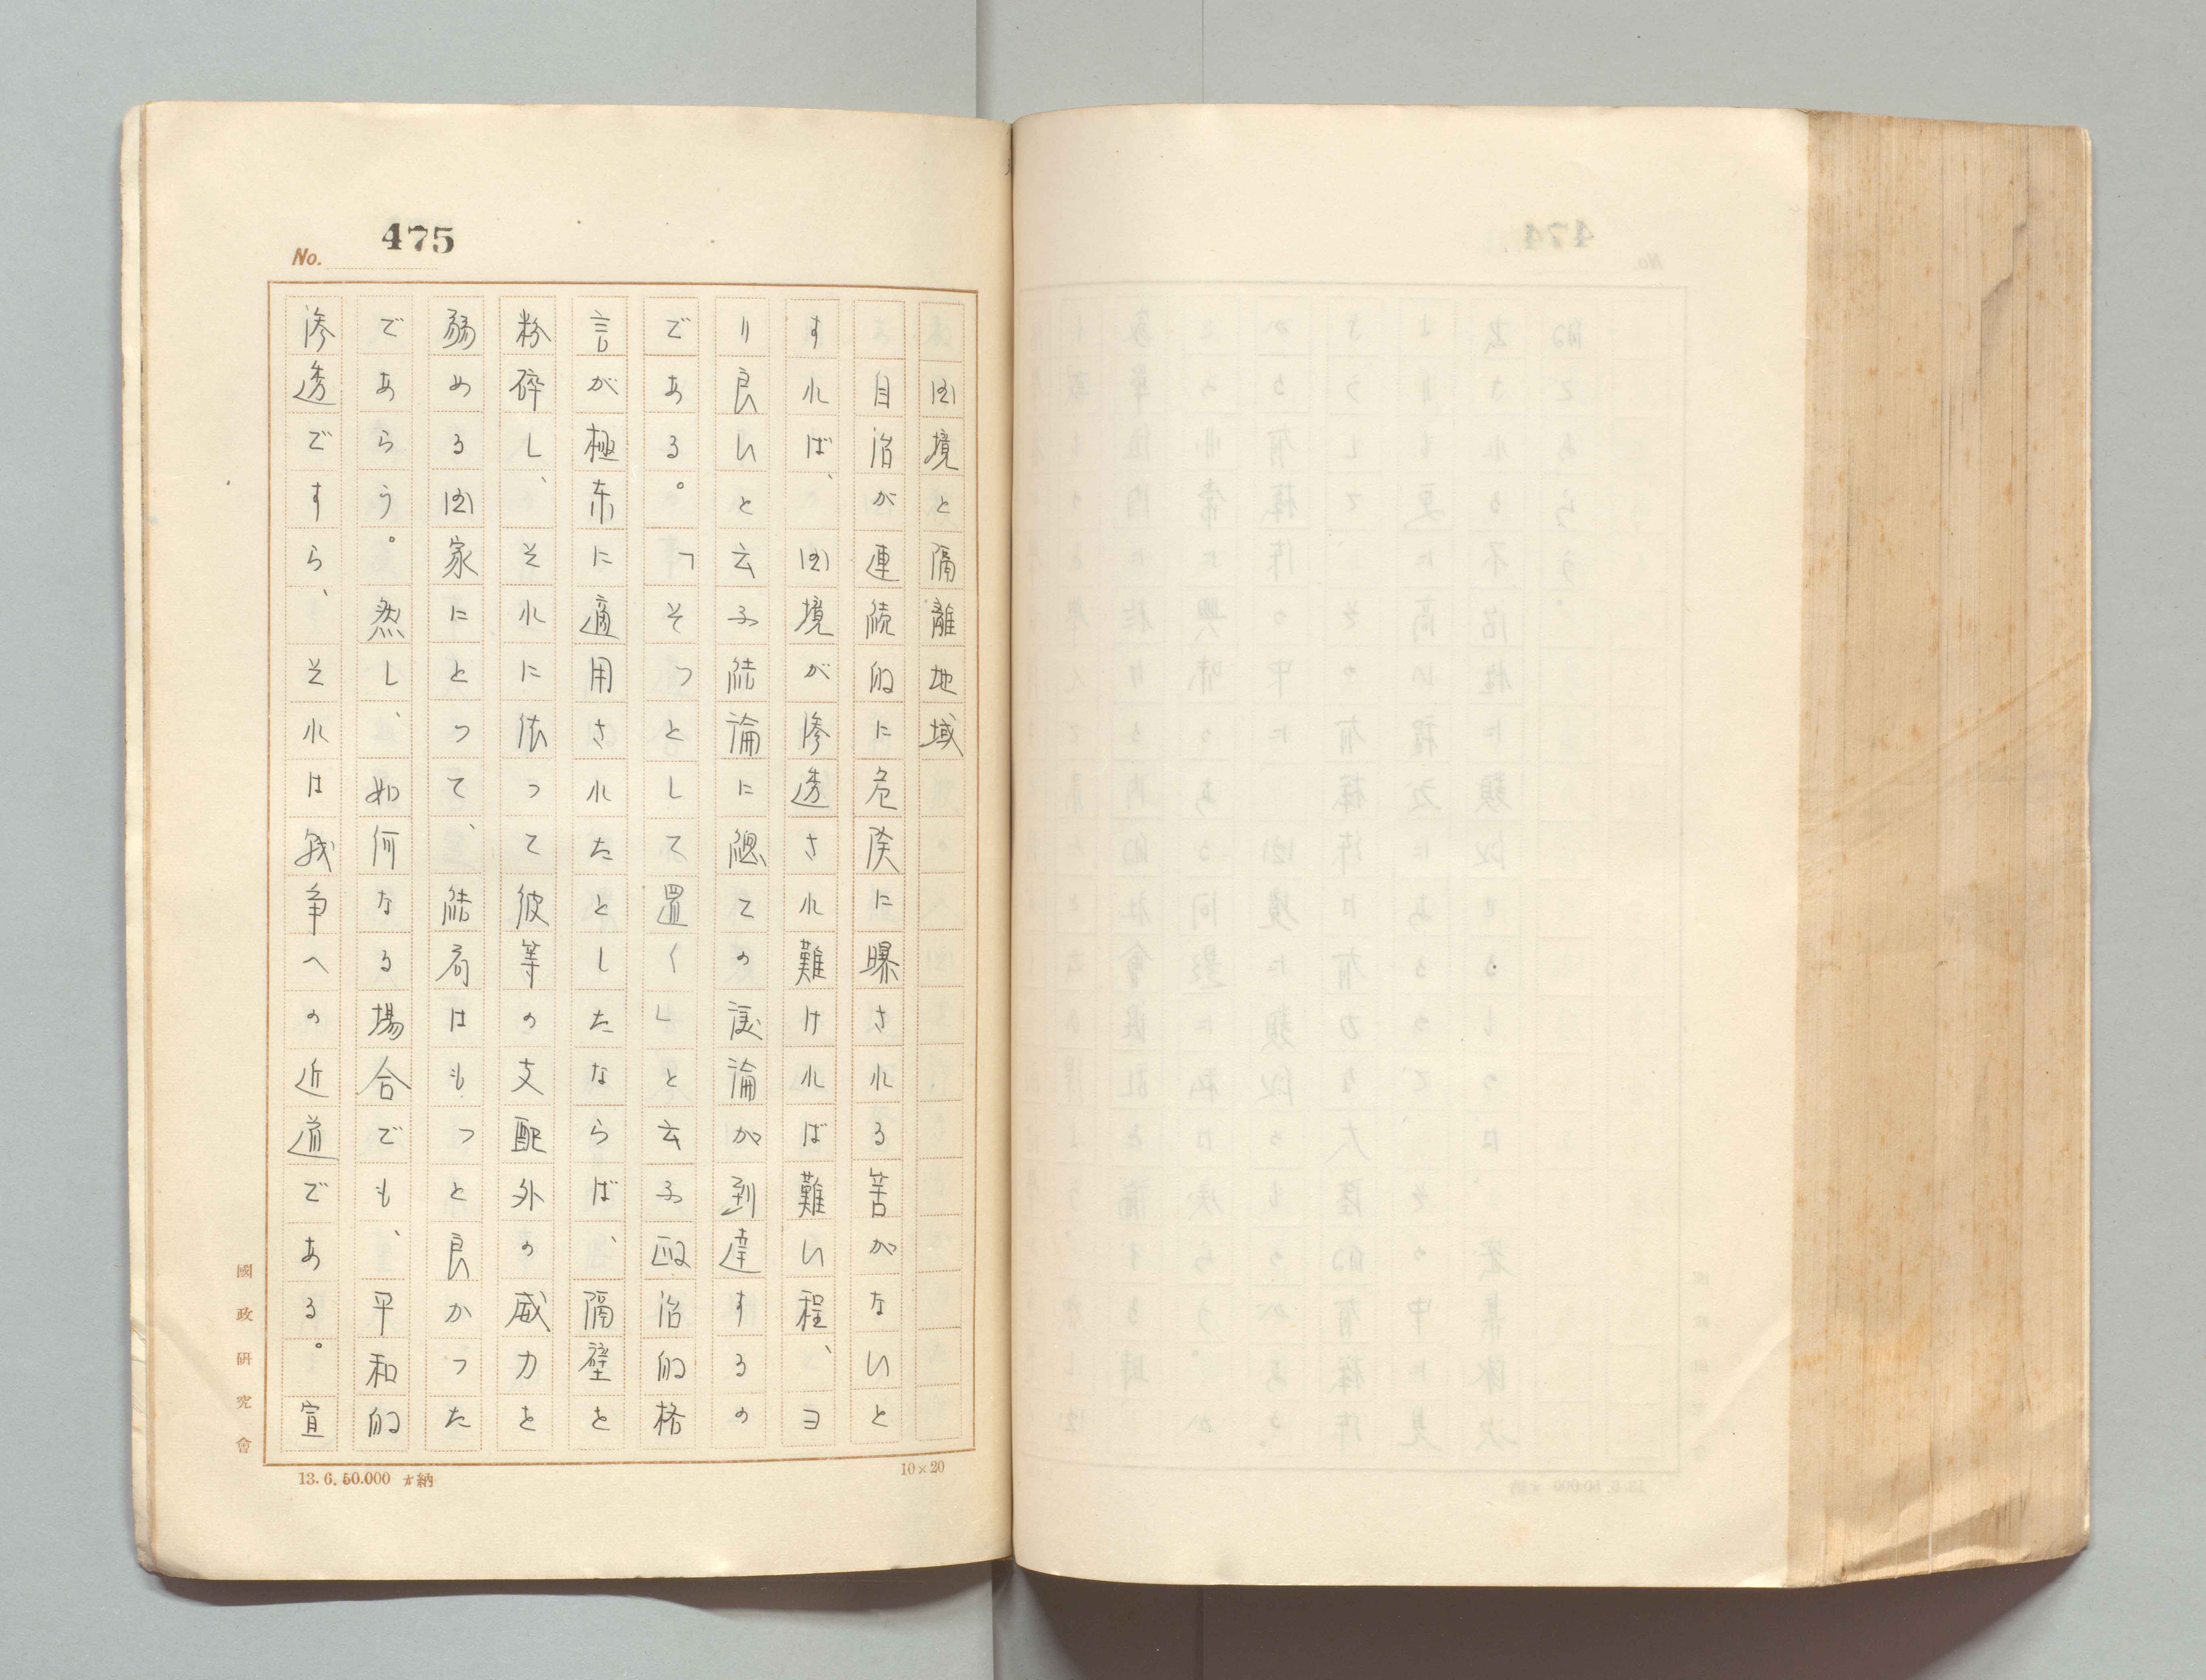 No. 475
国境と隔離地域
自治が連続的に危険に曝される筈がないと
すれば、国境が滲透され難ければ難い程、ヨ
リ良いと云ふ結論に総ての議論が到達するの
である。「そつとして置く」と云ふ政治的格
言が極東に適用されたとしたならば、隔壁を
粉砕し、それに依つて彼等の支配外の威力を
弱める国家にとつて、結局はもつと良かつた
であらう。然し、如何なる場合でも、平和的
滲透ですら、それは戦争への近道である。宣
國政研究會
10×20
13.6.50.000 納